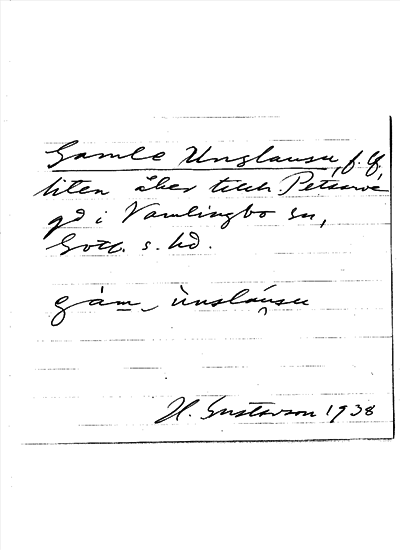 Gamle Unslausu, f. lf,
liten åker tillh. Petsarve
gd i Vamlingbo sn,
Gotl. s. hd.
gàm ùnsláusu
H. Gustavson 1938